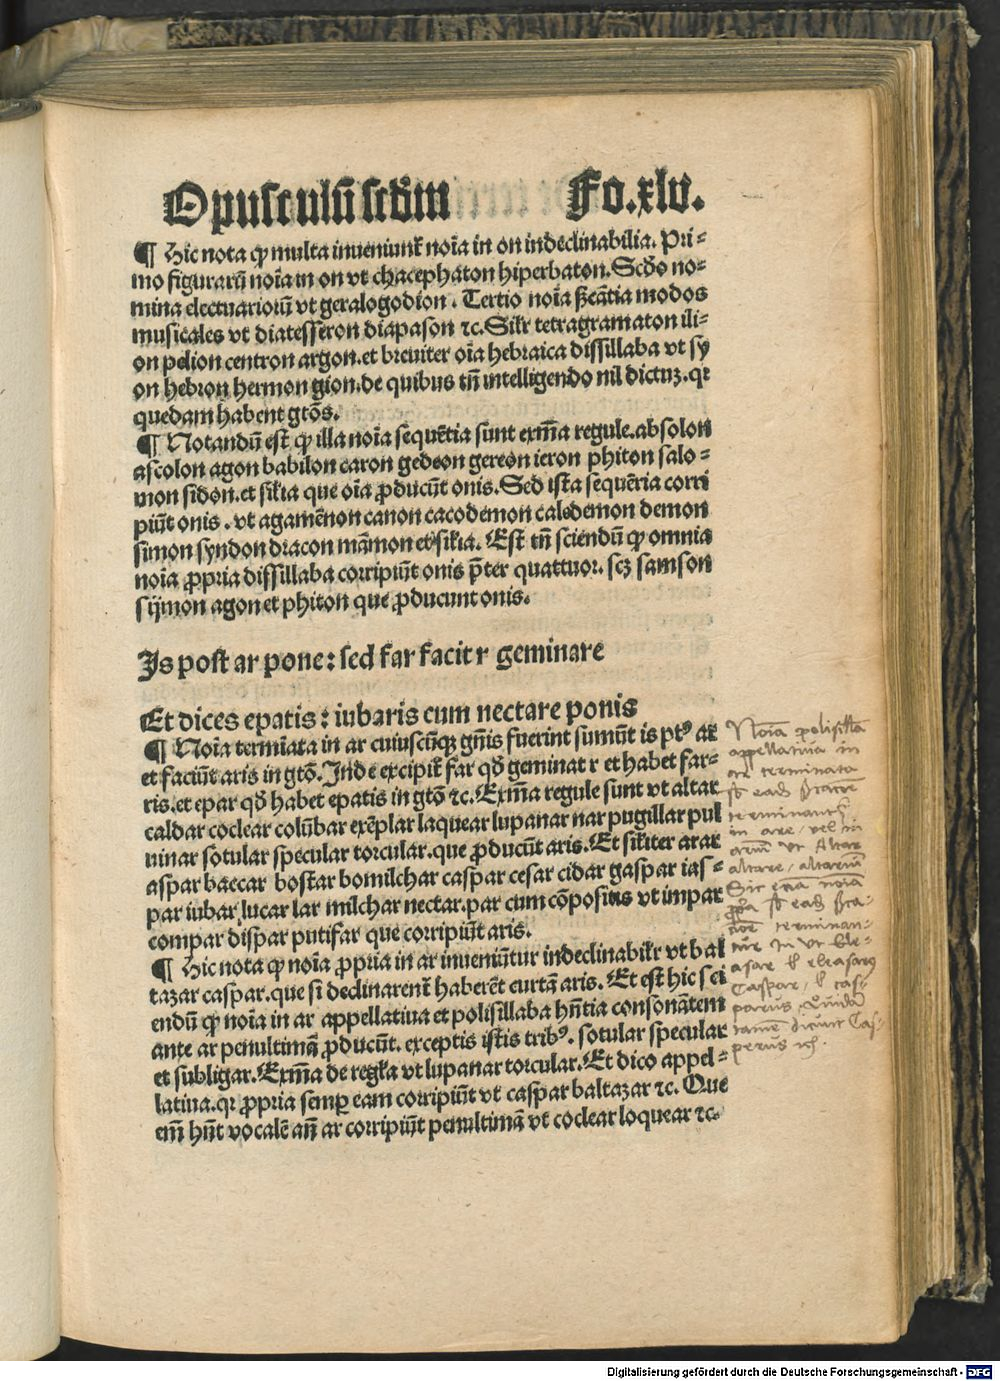 Opusculũ scd̃m Fo.xlv.
¶ Hic nota ꝙ multa inveniunt᷑ noĩa in on indeclinabilia. Pri⸗
mo figurarũ noĩa in on vt chacephaton hiperbaton. Scd̃o no⸗
mina electuariorũ vt geralogodion. Tertio noĩa ſignificãtia modos
musicales vt diatesseron diapason ⁊c. Sil'r tetragramaton ili⸗
on pelion centron argon. et breuiter oĩa hebraica dissillaba vt sy
on hebron hermon gion. de quibus tñ intelligendo nil dictuꝫ. qꝛ
quedam habent gtõs.
¶ Notandũ est ꝙ illa noĩa sequẽtia sunt exm̃a regule. absolon
ascolon agon babilon caron gedeon gereon ieron phiton salo⸗
mon sidon. et sil'ia que oĩa ꝓducũt onis. Sed ista sequẽtia corri
piũt onis. vt agamẽnon canon cacodemon calodemon demon
simon syndon dracon mãmon et sil'ia. Est tñ sciendũ ꝙ omnia
noĩa ꝓpria dissillaba corripiũt onis p̃ter quattuor. scꝫ samson
sijmon agon et phiton que ꝓducunt onis.
Is post ar pone: sed far facit r geminare
Et dices epatis: iubaris cum nectare ponis
¶ Noĩa termĩata in ar cuiuscũqꝫ gñis fuerint sumũt is ptꝰ ar
et faciũt aris in gtõ. Inde excipit᷑ far qd̃ geminat r et habet far⸗
ris. et epar qd̃ habet epatis in gtõ ⁊c. Exm̃a regule sunt vt altar
caldar coclear colũbar exẽplar laquear lupanar nar pugillar pul
uinar sotular specular torcular. que ꝓducũt aris. Et sil'iter arar
aspar baccar bostar bomilchar caspar cesar cidar gaspar ias⸗
par iubar lucar lar milchar nectar. par cum cõpositis vt impar
compar dispar putifar que corripiũt aris.
¶ Hic nota ꝙ noĩa ꝓpria in ar inueniũtur indeclinabil'r vt bal
tazar caspar. que si declinarent᷑ haberẽt curtã aris. Et est hic sci
endũ ꝙ noĩa in ar appellatiua et polisillaba hñtia consonãtem
ante ar penultimã ꝓducũt. exceptis istis tribꝰ. sotular specular
et subligar. Exm̃a de regl'a vt lupanar torcular. Et dico appel⸗
latiua. qꝛ ꝓpria semꝑ eam corripiũt vt caspar baltazar ⁊c. Que
em̃ hñt vocalẽ añ ar corripiũt penultimã vt coclear loquear ⁊c.
Noĩa polisilla
appellatiua in
ar terminata
terminantʳ
in are, vel in
arium vt Altar
altare, altarium
Sic etiã noĩa
terminan⸗
tur in vt Ele⸗
asare l eleasarꝰ
Caspar, l cas⸗
parus, Quidã
tamen dicunt Cas⸗
perus
Digitalisierung gefördert durch die Deutsche Forschungsgemeinschaft - DFG